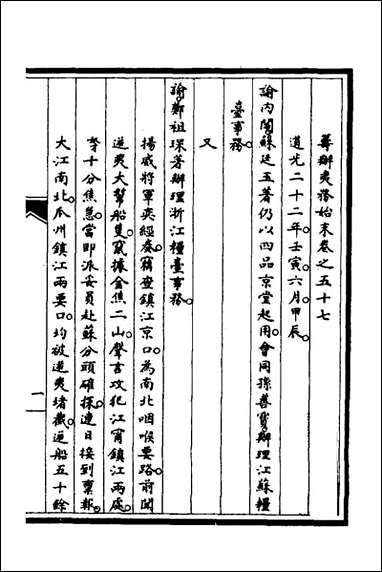 籌辦夷務始末卷之五十七
道光二十二年壬寅。六月。甲辰。
諭內閣蘇廷玉著仍以四品京堂起用。會同孫善寶辦理江蘇糧
臺事務。
又
諭鄭祖琛著辦理浙江糧臺事務。
揚威將軍奕經奏。竊查鎮江京口。為南北咽喉要路。前聞
逆夷大幫船隻。竄據金焦二山。聲言攻犯江甯鎮江兩處。
等十分焦急。當即派妥員赴蘇分頭確探。連日接到稟報。
大江南北。瓜州鎮江兩要口。均被逆夷堵截。逆船五十餘
一